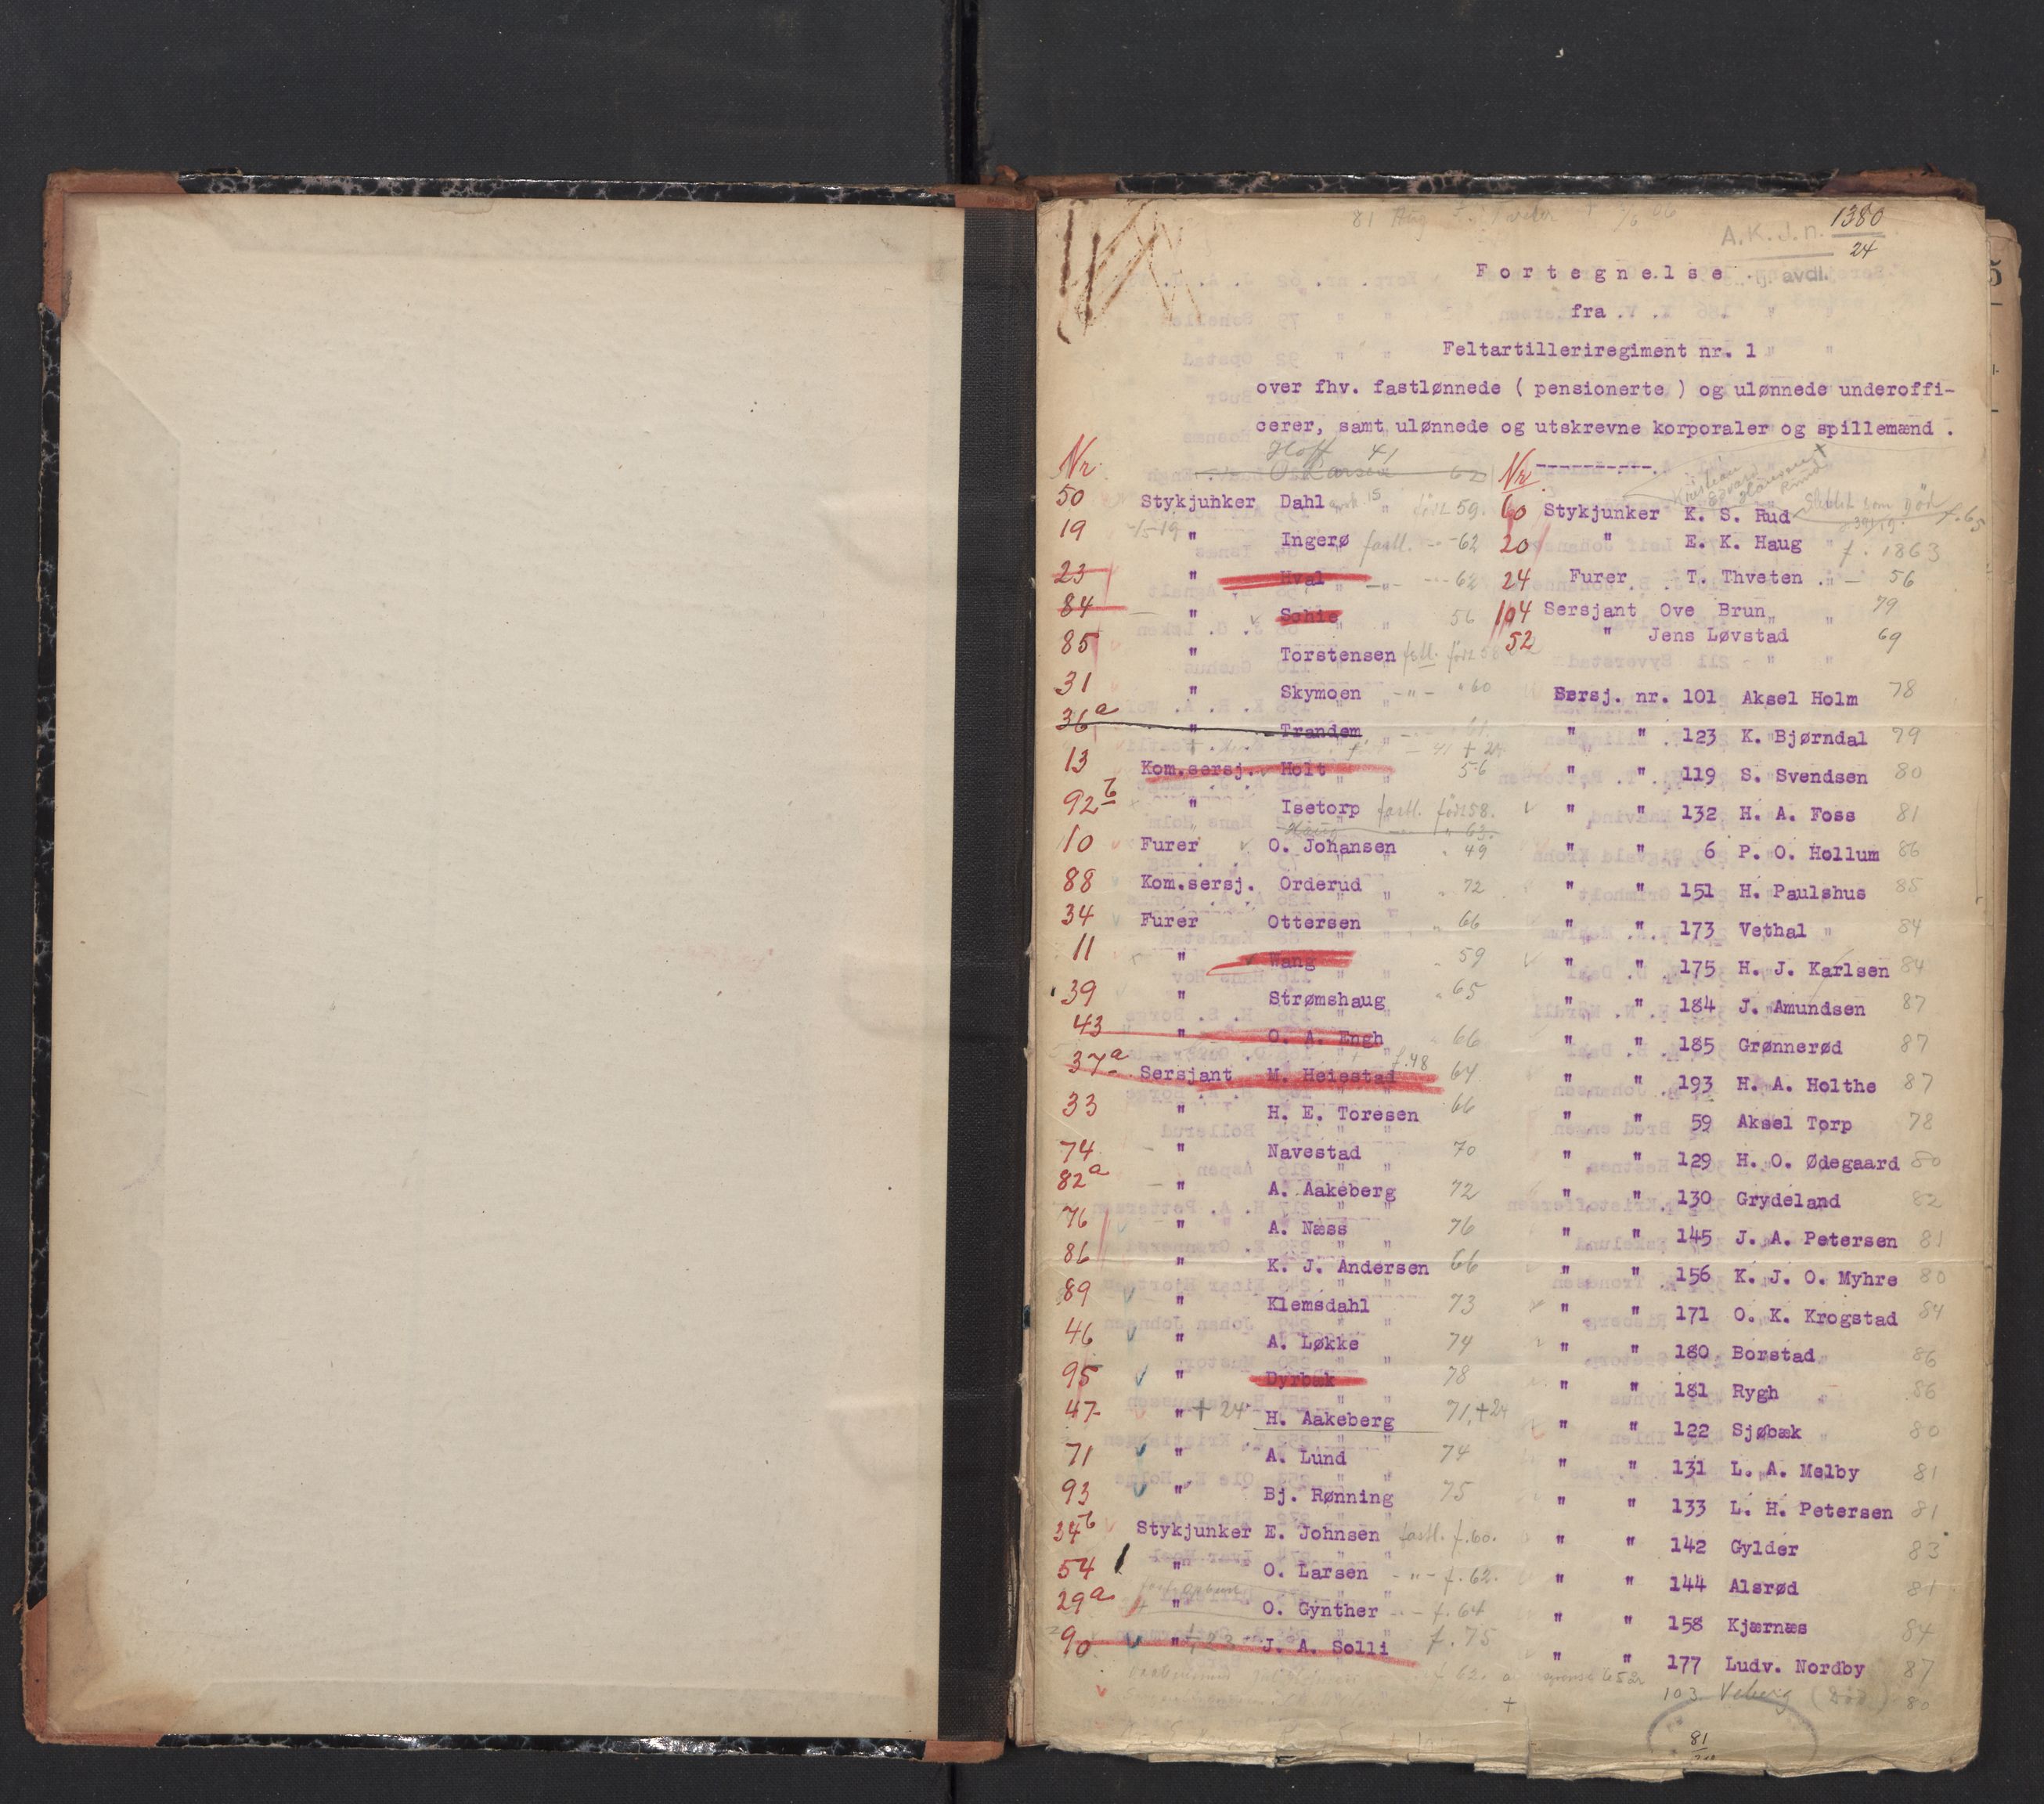 A.K.J.n. 1380
24
Fortegnelse
tj. avdl.
fra
Feltartilleriregiment nr. 1
over fhv. fastlønnede ( pensionerte ) og ulønnede underoffi-
cerer, samt ulønnede og utskrevne korporaler og spillemænd .
Nr.
Hoff 41
62
50 Stykjunker Dahl 15 født 59.
19 " Ingerø fastl. 62
23 " Hval 62
84 " Schie 56
85 " Torstensen født 58
31 " Skymoen 60
36a " Trandem 61
13 Kom.sersj. Holt 56
92b " Isetorp fastl. født 58.
Haug 63.
10 Furer O. Johansen 49
88 Kom.sersj. Orderud 72
34 Furer Ottersen 66
11 " Wang 59
39 " Strømshaug 65
43 " O. A. Engh 66
37a Sersjant M. Heiestad f.48 64
33 " H. E. Toresen 66
74 " Navestad 70
82a " A. Aakeberg 72
76 " A. Næss 76
86 " K. J. Andersen 66
89 " Klemsdahl 73
46 " A. Løkke 74
95 " Dyrbæk 78
47 " + 24 H. Aakeberg 71, +24
71 " A. Lund 74
93 " Bj. Rønning 75
34b Stykjunker E. Johnsen fastl. f.60.
54 " O. Larsen - " - f.62.
29a " O. Gynther f.64
90 " J. A. Solli f.75
Nr.
60 Stykjunker K. S. Rud f.65
20 " E. K. Haug f. 1863
24 Furer T. Thveten 56
104 Sersjant Ove Brun 79
52 " Jens Løvstad 69
Sersj. nr. 101 Aksel Holm 78
" " 123 K. Bjørndal 79
" " 119 S. Svendsen 80
" " 132 H. A. Foss 81
" " 6 P. O. Hollum 86
" " 151 H. Paulshus 85
" " 173 Vethal 84
" " 175 H. J. Karlsen 84
" " 184 J. Amundsen 87
" " 185 Grønnerød 87
" " 193 H. A. Holthe 87
" " 59 Aksel Torp 78
" " 129 H. O. Ødegaard 80
" " 130 Grydeland 82
" " 145 J. A. Petersen 81
" " 156 K. J. O. Myhre 80
" " 171 O. K. Krogstad 84
" " 180 Borstad 86
" " 181 Rygh 86
" " 122 Sjøbæk 80
" " 131 L. A. Melby 81
" " 133 L. H. Petersen 81
" " 142 Gylder 83
" " 144 Alsrød 81
" " 158 Kjærnæs 84
" " 177 Ludv. Nordby 87
103 Veberg (Død) 80
81